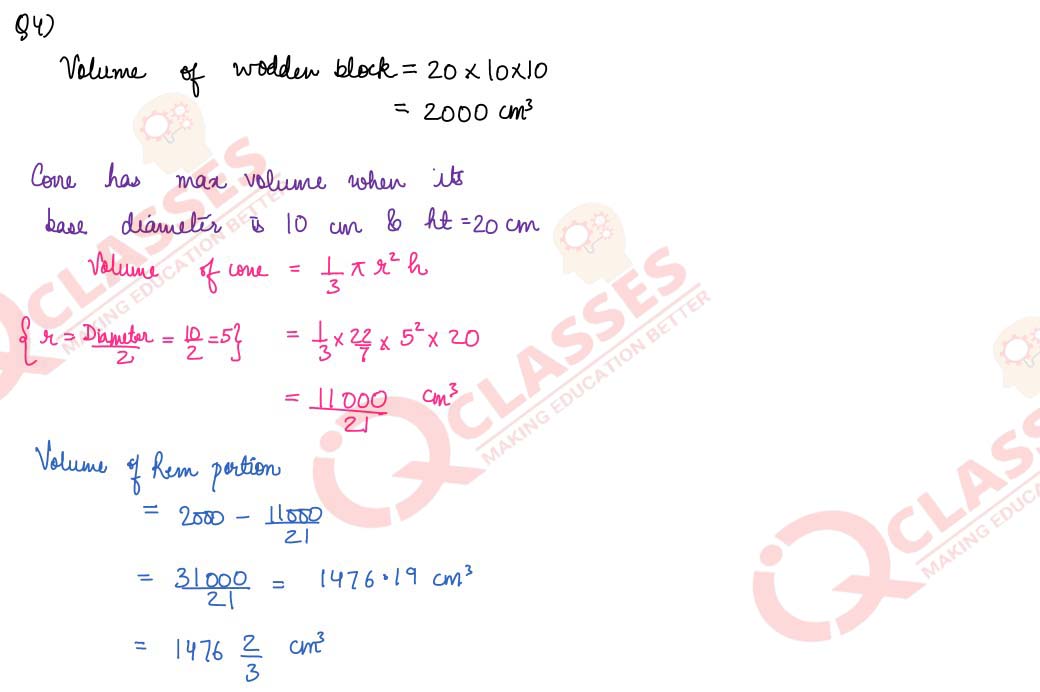 Q4)
Volume of wodden block = 20 × 10 × 10
= 2000 cm³
Cone has max volume when its
base diameter is 10 cm & ht = 20 cm
Volume of cone = 1/3 π r² h
{ r = Diameter/2 = 10/2 = 5} = 1/3 × 22/7 × 5² × 20
= 11000/21 cm³
Volume of Rem portion
= 2000 − 11000/21
= 31000/21 = 1476.19 cm³
= 1476 2/3 cm³
CLASSES
MAKING EDUCATION BETTER
QCLASSES
MAKING EDUCATION BETTER
QCLASS
MAKING EDUCA